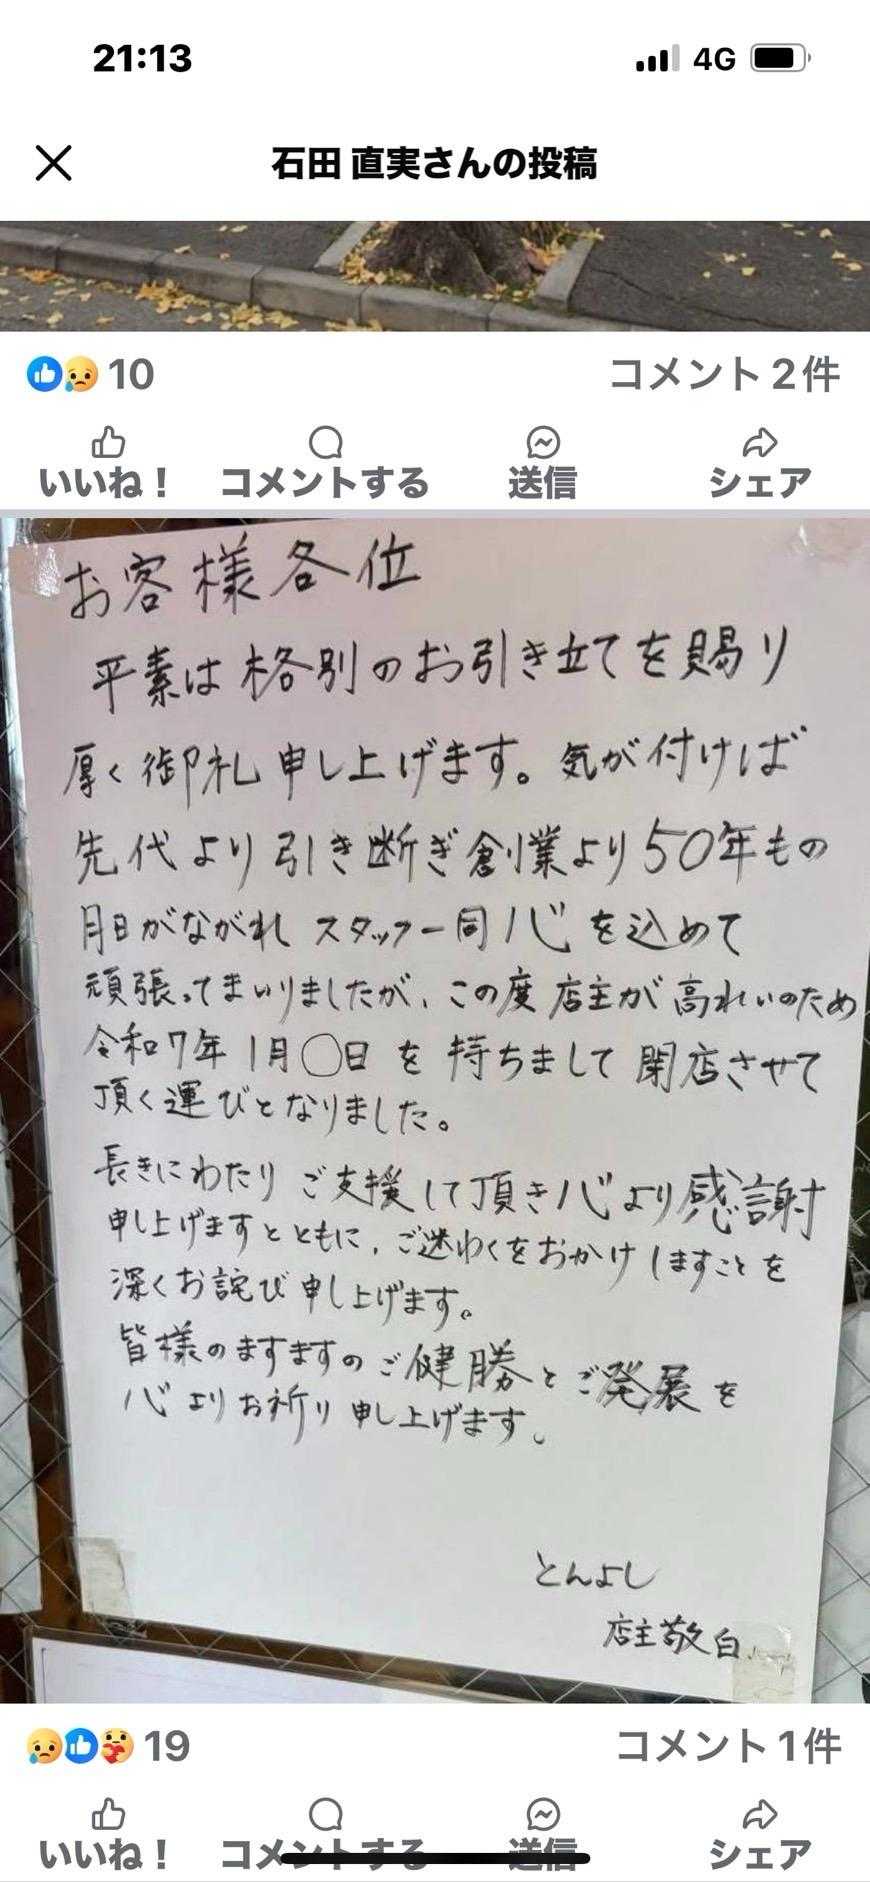 21:13
4G
石田 直実さんの投稿
10
コメント 2件
いいね!
コメントする
送信
シェア
お客様各位
平素は格別のお引き立てを賜り
厚く御礼申し上げます。気が付けば
先代より引き断ぎ創業より50年もの
月日がながれ スタッフ一同 心を込めて
頑張ってまいりましたが、この度店主が高れいのため
令和7年1月〇日を持ちまして閉店させて
頂く運びとなりました。
長きにわたりご支援して頂き心より感謝
申し上げますとともに、ご迷わくをおかけしますことを
深くお詫び申し上げます。
皆様のますますのご健勝とご発展を
心よりお祈り申し上げます。
とんよし
店主敬白
19
コメント 1件
いいね!
コメントする
送信
シェア